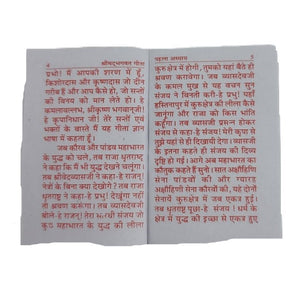 4 श्रीमद्भगवत गीता
प्रभो! मैं आपकी शरण में हूँ,
किशोरदास और कृष्णदास जो दीन
गरीब हैं और आप कैसे हो, जो सन्तों
की विनय को मान लेते हो। हे
कमललोचन, श्रीकृष्ण भगवानजी!
हे कृपानिधान जी! तेरे सन्तों एवं
भक्तों के वास्ते मैं यह गीता ज्ञान
भाषा में कहता हूँ।
जब कौरव और पांडव महाभारत
के युद्ध को चले, तब राजा धृतराष्ट्र
ने कहा कि मैं भी युद्ध देखने चलूँगा।
तब श्रीवेदव्यासजी ने कहा-हे राजन्!
नेत्रों के बिना क्या देखोगे? तब राजा
धृतराष्ट्र ने कहा-हे प्रभु! देखूंगा नहीं
तो श्रवण करूँगा। तब व्यासदेवजी
बोले-हे राजन्! तेरा सारथी संजय जो
कुछ महाभारत के युद्ध की लीला
पहला अध्याय 5
कुरुक्षेत्र में होगी, तुमको यहां बैठे ही
श्रवण करावेगा। जब व्यासदेवजी
के कमल मुख से यह वचन सुन
संजय ने विनती करी-हे प्रभु! यहाँ
हस्तिनापुर में कुरुक्षेत्र की लीला कैसे
जानूंगा और राजा को किस भांति
कहूंगा। तब व्यासजी ने प्रसन्न होकर
संजय से कहा-हे संजय! मेरी कृपा से
तुझे यहां से ही दिखाई देगा। व्यासजी
के इतना कहते ही संजय की दिव्य
दृष्टि हो गई। आगे अब महाभारत का
कौतुक कहते हैं सुनो। सात अक्षौहिणि
सेना पांडवों की और ग्यारह
अक्षौहिणी सेना कौरवों की, यह दोनों
सेनायें कुरुक्षेत्र में जब एकत्र हुई।
तब धृतराष्ट्र पूछा-हे संजय! धर्म के
क्षेत्र में युद्ध की इच्छा से एकत्र हुए